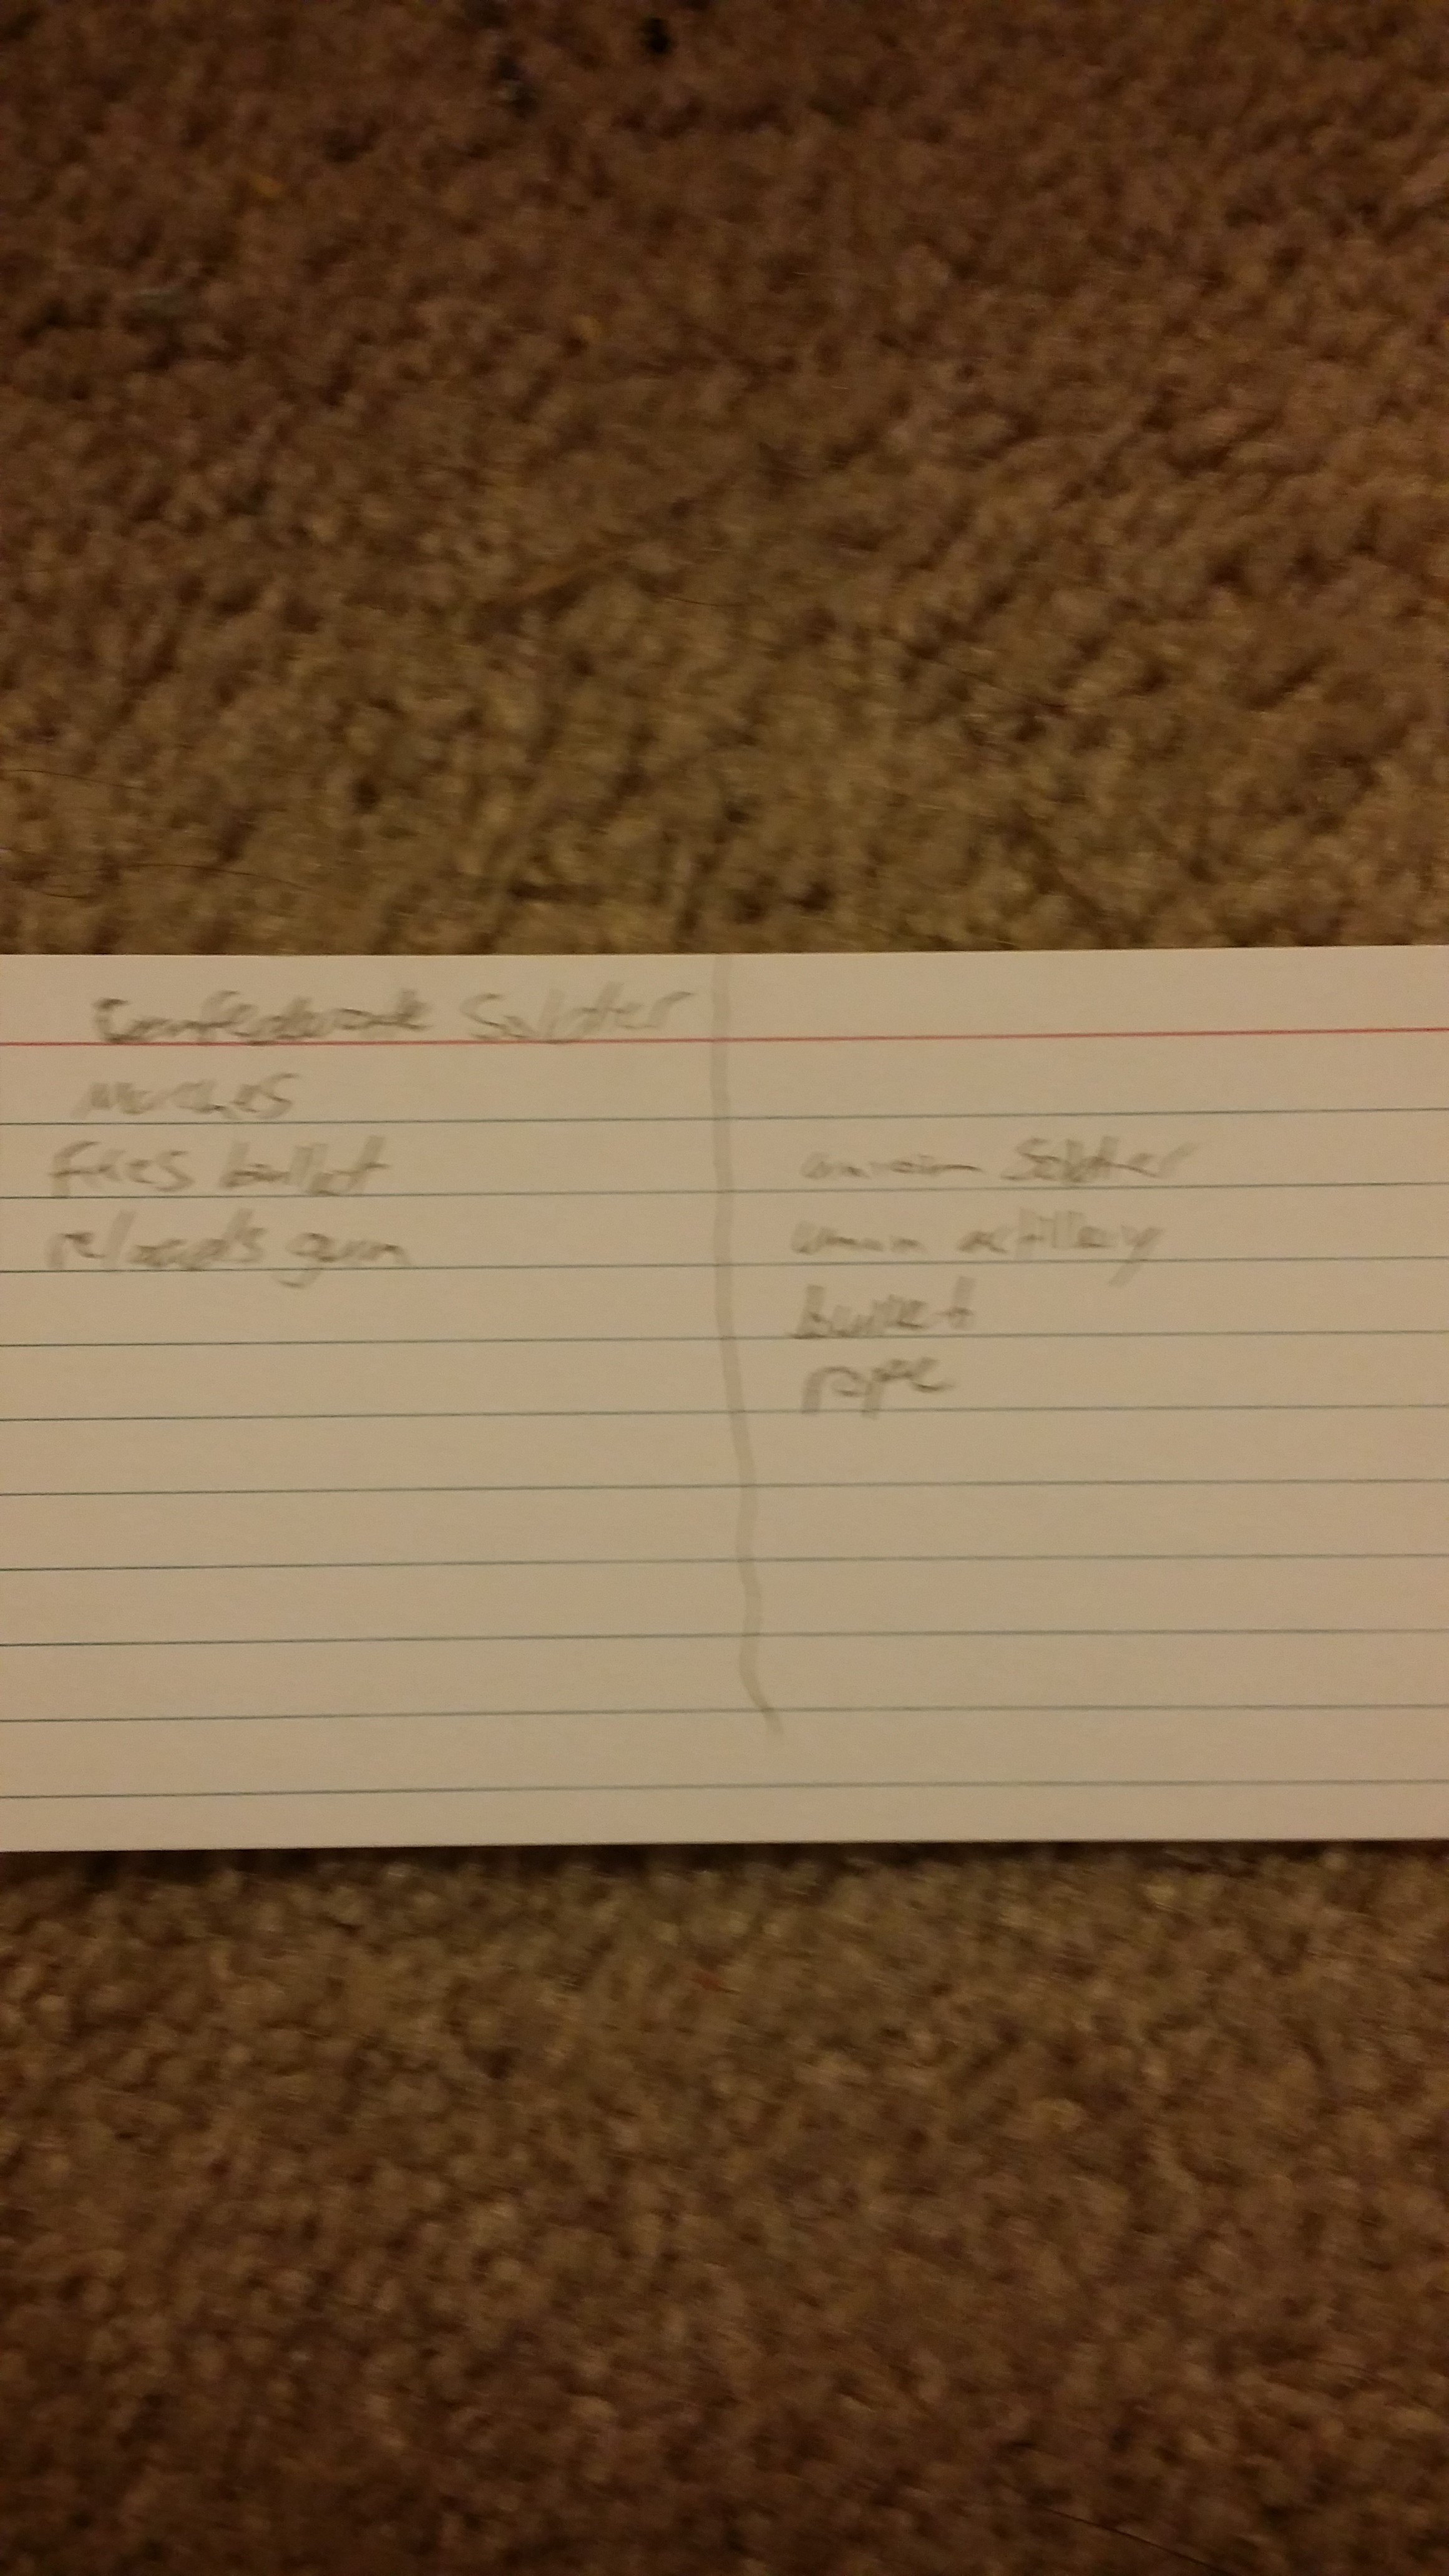 Confederate Soldier
marches
fires bullet
reloads gun
union Soldier
union artillery
bullet
rope